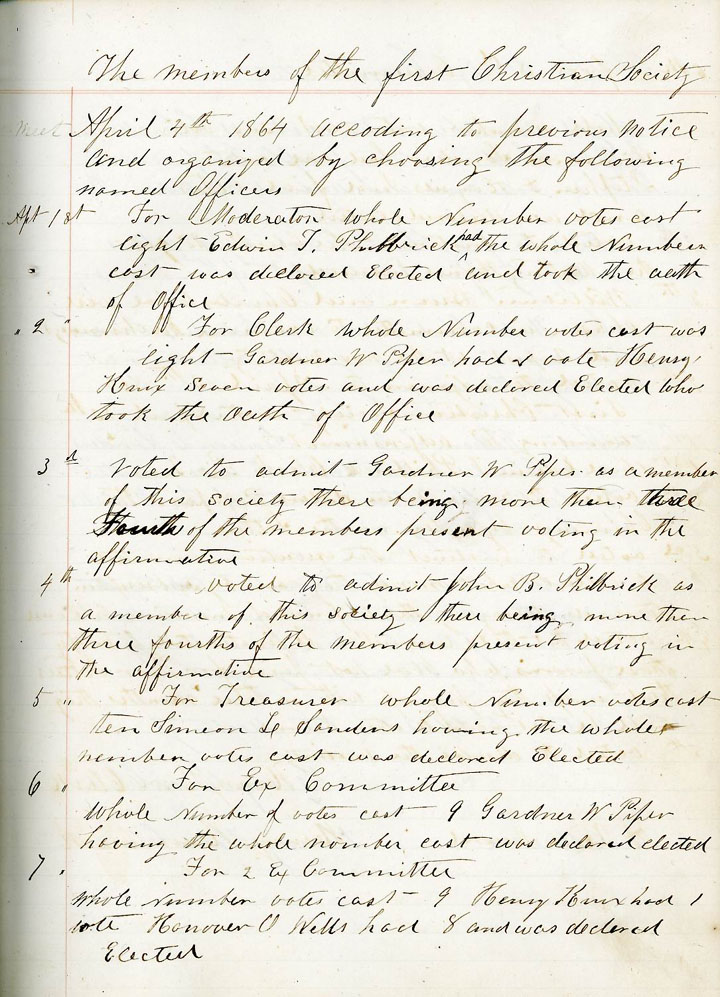 The members of the first Christian Society
meet April 4th 1864 accoding to previous notice
and organized by choosing the following
named Officers
Apt 1st For Moderator whole Number votes cast
eight Edwin T. Philbrick had the whole Number
cast was declared Elected and took the oath
of Office
" 2 " For Clerk whole Number votes cast was
eight Gardner W Piper had 1 vote Henry
Knox seven votes and was declared Elected who
took the Oath of Office
3d Voted to admit Gardner W Piper as a member
of this society there being more then three
Fourth of the members present voting in the
affirmative
4th voted to admit John B. Philbrick as
a member of this society there being more then
three fourths of the members present voting in
the affirmative
5 " For Treasurer whole Number votes cast
ten Simeon L Sanders having the whole
number votes cast was declared Elected
6 " For Ex Committee
Whole Number of votes cast 9 Gardner W Piper
having the whole number cast was declared elected
7 " For 2 Ex Committee
whole Number votes cast 9 Henry Knox had 1
vote Hanover O Wells had 8 and was declared
Elected